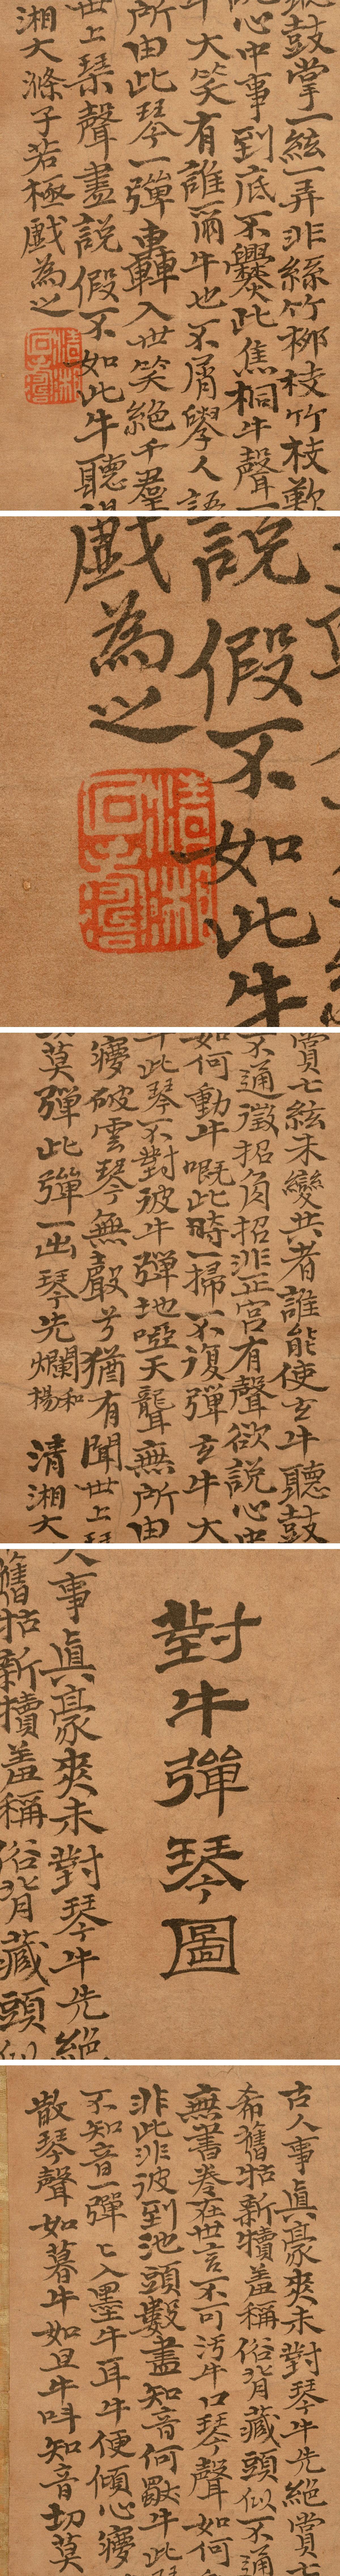 聽鼓掌一絃一弄非絲竹柳枝竹枝歎
說心中事到底不爨此焦桐牛聲一
牛大笑有誰爾牛也不屑學人語
所由此琴一彈轟入世笑絕千羣
世上琴聲盡說假不如此牛聽得
湘大滌子若極戲為之
清湘石濤
說假不如此牛
戲為之
清湘石濤
賞七絃未變共者誰能使玄牛聽鼓
不通徵招角招非正宮有聲欲說心中
如何動牛嘅此時一掃不復彈玄牛大
牛此琴不對彼牛彈地啞天聾無所由
癭破雲琴無聲兮猶有聞世上琴
切莫彈此彈一出琴先爛和楊 清湘大
對牛彈琴圖
人事真豪爽未對琴牛先絕
舊牯新犢羞稱俗背藏頭似
古人事真豪爽未對琴牛先絕賞七
希舊牯新犢羞稱俗背藏頭似不通
無書卷在世言不可污牛口琴聲如何
非此非彼到池頭數盡知音何獨牛此琴
不知音一彈〻入墨牛耳牛便傾心癭
散琴聲如暮牛如旦牛叫知音切莫